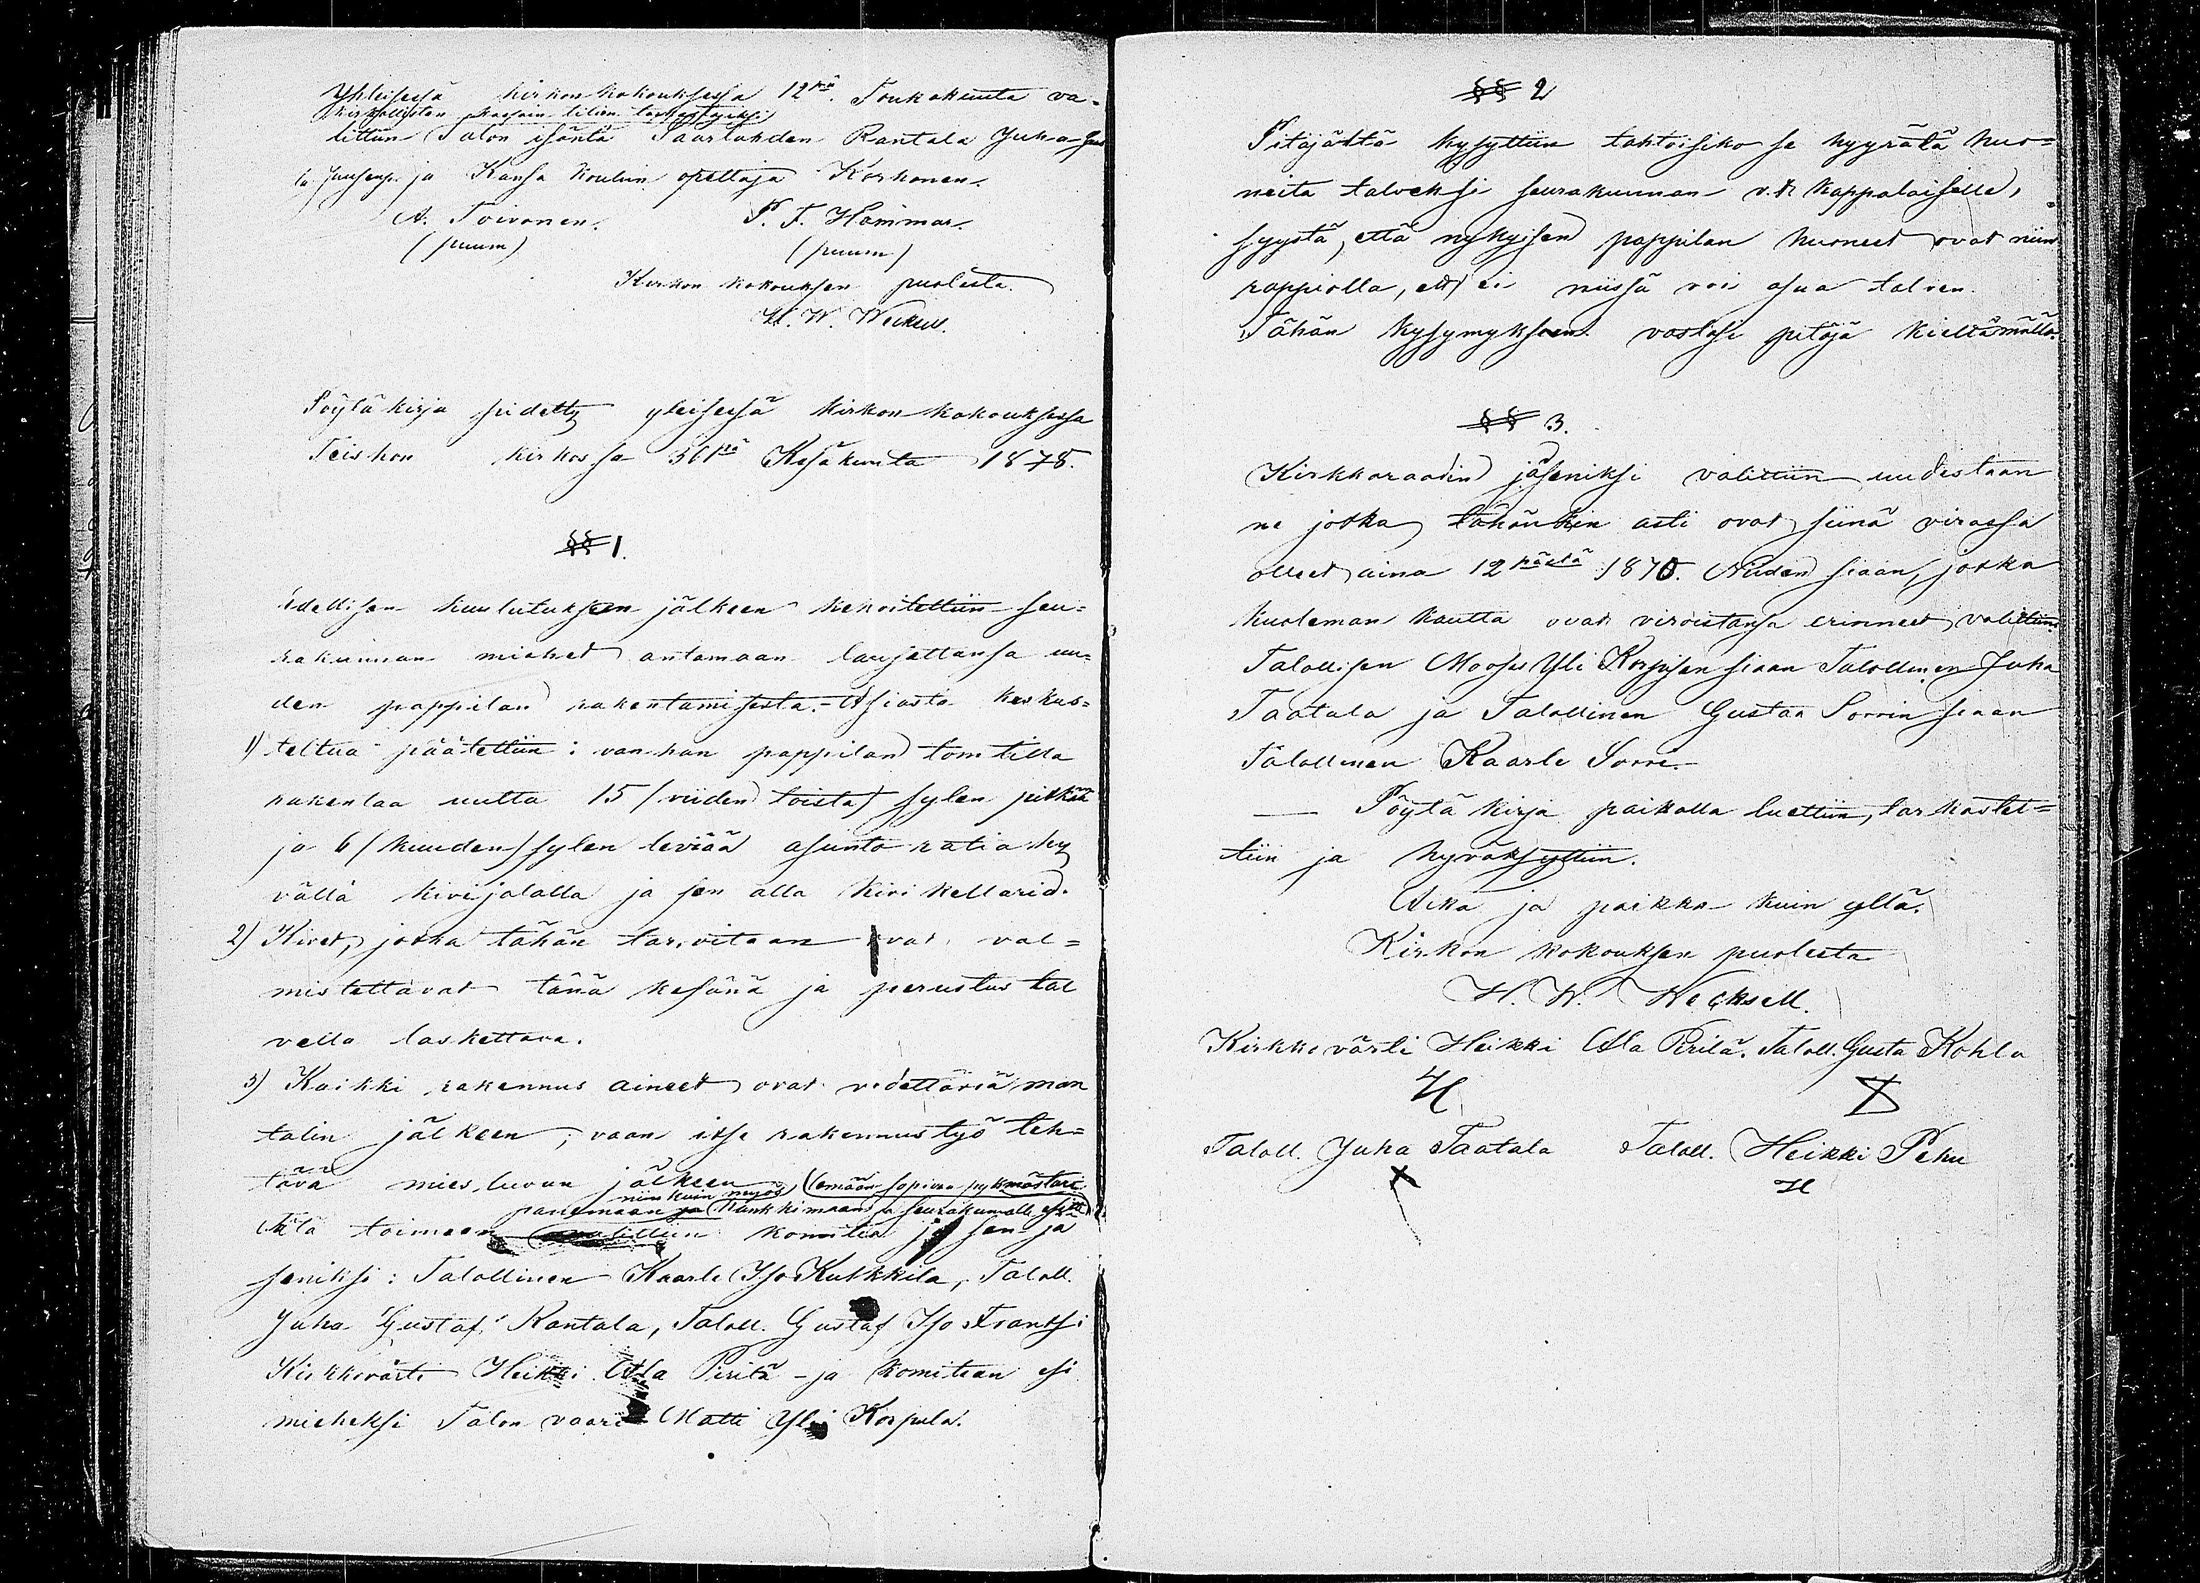 Yhteisessä kirkon kokouksessa 12nä Toukokuuta va-
kirkollisten kassain tilien tarkastajiksi
littiin Talon isäntä Paarlahden Rantala Juha
ja Kansa koulun opettaja Korhonen.
A. Toivonen. P. F. Hammar.
(puum) (puum)
Kirkon kokouksen puolesta.
H. W. Wecksell.
Pöytäkirja pidetty yleisessä kirkon kokouksessa
Teiskon kirkossa 30nä Kesäkuuta 1878.
§§ 1.
Edellisen kuulutuksen jälkeen kehoitettiin seu=
rakunnan miehet antamaan lausettansa uu=
den pappilan rakentamisesta. - Asiasta keskus=
1) teltua päätettiin: vanhan pappilan tomtilla
rakentaa uutta 15 (viiden toista) sylen pitkää
ja 6 (kuuden) sylen leviää asunto ratia hy
vällä kivijalalla ja sen alla kivi kellarid.
2) Kivet, jotka tähän tarvitaan ovat val=
mistettavat tänä kesänä ja perustus tal
vella laskettava.
3) Kaikki rakennus aineet ovat vedettävä man
talin jälkeen; vaan itse rakennus työ teh=
tävä mies luvun jälkeen
niin kuin myös (emään sopivaa pykmästari
panemaan ja hankkimaan ja seurakunnalle
Tätä toimeen valittiin komitea ja sen jä
seniksi: Talollinen Kaarle Iso Kulkkila, Taloll.
Juha Gustaf Rantala, Taloll. Gustaf Iso Frantsi
Kirkkovärti Heikki Ala Pirilä - ja komitean esi
mieheksi Talon vaari Matti Yli Korpula.
§§ 2
Pitäjältä kysyttiin tahtoisiko se hyyrätä huo=
neita talveksi seurakunnan v.t. kappalaiselle,
syystä, että nykyisen pappilan huoneet ovat niin
rappiolla, ett' ei niissä voi asua talven.
Tähän kysymykseen vastasi pitäjä kieltämällä.
§§ 3.
Kirkkoraadin jäseniksi valittiin uudestaan
ne jotka tähänkin asti ovat siinä virassa
olleet aina 12 päästä 1870. Niiden siaan, jotka
kuoleman kautta ovat viroistansa erinneet, valittiin
Talollisen Mooses Yli Korpisen siaan Talollinen Juha
Taatala ja Talollinen Gustaa Sorrin siaan
Talollinen Kaarle Sorri. -
- Pöytä kirja paikalla luettiin, tarkastet=
tiin ja hyväksyttiin.
Aika ja paikka kuin yllä.
Kirkon kokouksen puolesta
H. W. Wecksell.
Kirkkovärti Heikki Ala Pirilä. Taloll. Gusta Kohla
H X
Taloll. Juha Taatala Taloll. Heikki Pehu
X H